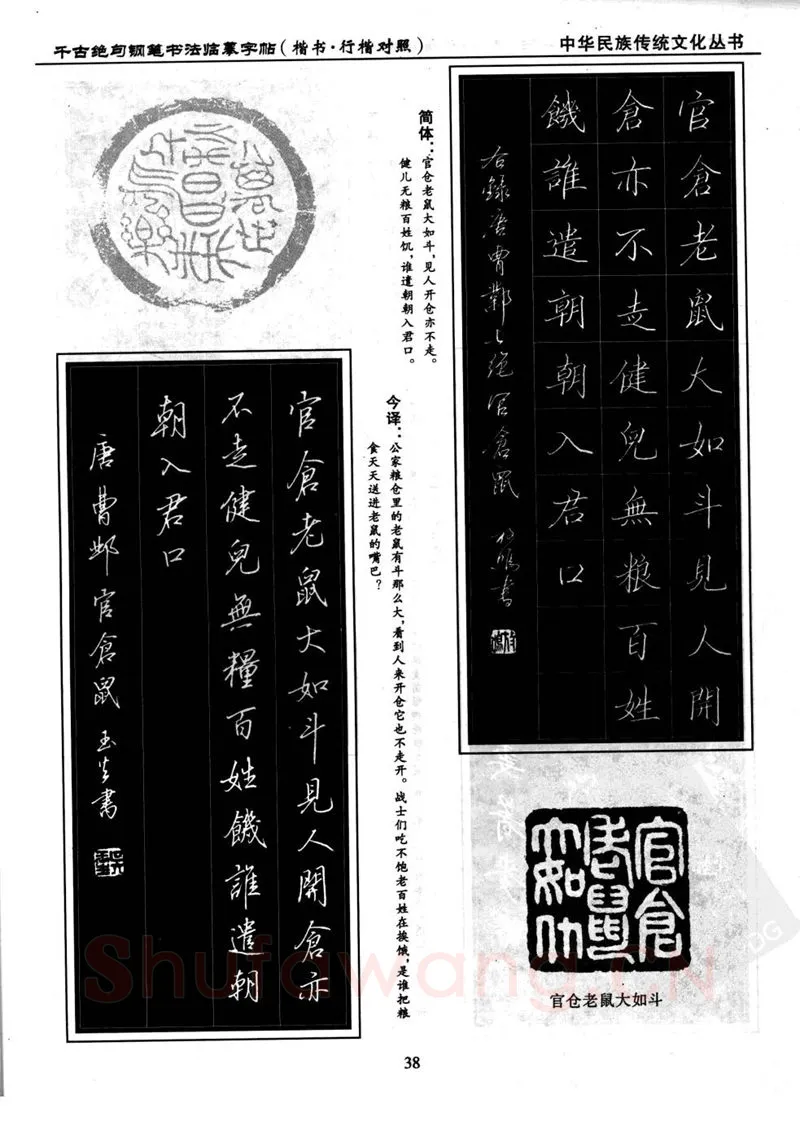 千古绝句钢笔书法临摹字帖(楷书·行楷对照)
中华民族传统文化丛书
官倉老鼠大如斗見人開
倉亦不走健兒無粮百姓
饑誰遣朝朝入君口
右錄唐曹鄴七绝官倉鼠
简体:官仓老鼠大如斗,见人开仓亦不走。
健儿无粮百姓饥,谁遣朝朝入君口。
今译:公家粮仓里的老鼠有斗那么大,看到人来开仓它也不走开。战士们吃不饱老百姓在挨饿,是谁把粮
食天天送进老鼠的嘴巴?
官倉老鼠大如斗見人開倉亦
不走健兒無糧百姓饑誰遣朝
朝入君口
唐曹邺官倉鼠
官倉老鼠大如斗
官仓老鼠大如斗
38
Shufawang.CN